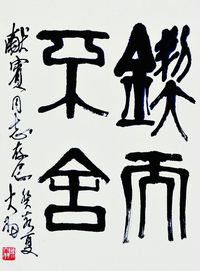 鍥而
不舍
献宾同志存念 癸亥夏
大羽